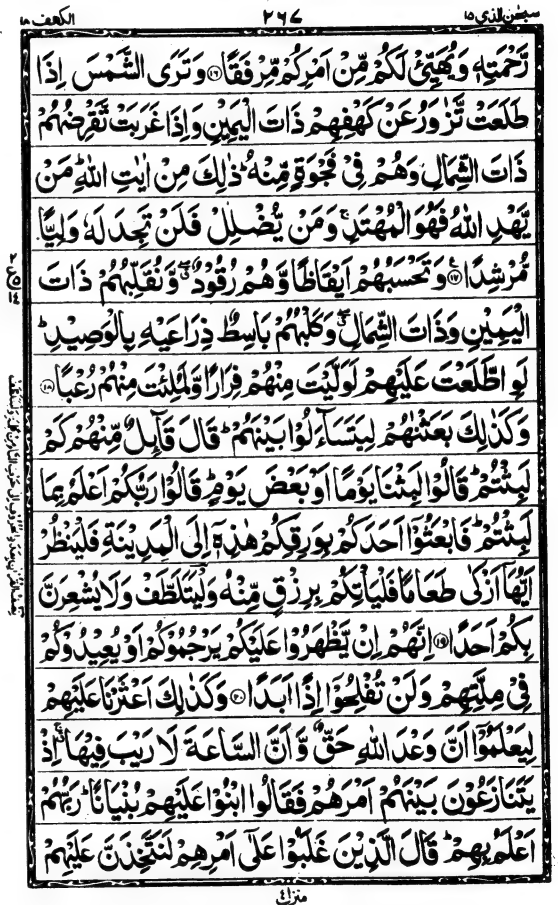 سبحٰن الذي ١٥
٢٦٧
الكهف ١٨
رَّحْمَتِهٖ وَيُهَيِّئْ لَكُمْ مِّنْ اَمْرِكُمْ مِّرْفَقًا ⑯ وَتَرَى الشَّمْسَ اِذَا
طَلَعَتْ تَّزٰوَرُ عَنْ كَهْفِهِمْ ذَاتَ الْيَمِيْنِ وَاِذَا غَرَبَتْ تَّقْرِضُهُمْ
ذَاتَ الشِّمَالِ وَهُمْ فِيْ فَجْوَةٍ مِّنْهُ ؕ ذٰلِكَ مِنْ اٰيٰتِ اللّٰهِ ؕ مَنْ
يَّهْدِ اللّٰهُ فَهُوَ الْمُهْتَدِ ۚ وَمَنْ يُّضْلِلْ فَلَنْ تَجِدَ لَهٗ وَلِيًّا
مُّرْشِدًا ⑰ وَتَحْسَبُهُمْ اَيْقَاظًا وَّهُمْ رُقُوْدٌ ۖ وَّنُقَلِّبُهُمْ ذَاتَ
الْيَمِيْنِ وَذَاتَ الشِّمَالِ ۖ وَكَلْبُهُمْ بَاسِطٌ ذِرَاعَيْهِ بِالْوَصِيْدِ ؕ
لَوِ اطَّلَعْتَ عَلَيْهِمْ لَوَلَّيْتَ مِنْهُمْ فِرَارًا وَّلَمُلِئْتَ مِنْهُمْ رُعْبًا ⑱
وَكَذٰلِكَ بَعَثْنٰهُمْ لِيَتَسَآءَلُوْا بَيْنَهُمْ ؕ قَالَ قَآئِلٌ مِّنْهُمْ كَمْ
لَبِثْتُمْ ؕ قَالُوْا لَبِثْنَا يَوْمًا اَوْ بَعْضَ يَوْمٍ ؕ قَالُوْا رَبُّكُمْ اَعْلَمُ بِمَا
لَبِثْتُمْ ؕ فَابْعَثُوْٓا اَحَدَكُمْ بِوَرِقِكُمْ هٰذِهٖٓ اِلَى الْمَدِيْنَةِ فَلْيَنْظُرْ
اَيُّهَآ اَزْكٰى طَعَامًا فَلْيَاْتِكُمْ بِرِزْقٍ مِّنْهُ وَلْيَتَلَطَّفْ وَلَا يُشْعِرَنَّ
بِكُمْ اَحَدًا ⑲ اِنَّهُمْ اِنْ يَّظْهَرُوْا عَلَيْكُمْ يَرْجُمُوْكُمْ اَوْ يُعِيْدُوْكُمْ
فِيْ مِلَّتِهِمْ وَلَنْ تُفْلِحُوْٓا اِذًا اَبَدًا ⑳ وَكَذٰلِكَ اَعْثَرْنَا عَلَيْهِمْ
لِيَعْلَمُوْٓا اَنَّ وَعْدَ اللّٰهِ حَقٌّ وَّاَنَّ السَّاعَةَ لَا رَيْبَ فِيْهَا ۚ اِذْ
يَتَنَازَعُوْنَ بَيْنَهُمْ اَمْرَهُمْ فَقَالُوا ابْنُوْا عَلَيْهِمْ بُنْيَانًا ؕ رَبُّهُمْ
اَعْلَمُ بِهِمْ ؕ قَالَ الَّذِيْنَ غَلَبُوْا عَلٰٓى اَمْرِهِمْ لَنَتَّخِذَنَّ عَلَيْهِمْ
منزل ٤